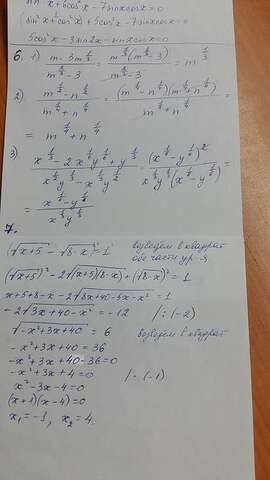 sin²x+6cos²x-7sinxcosx=0
(sin²x+cos²x)+5cos²x-7sinxcosx=0
5cos²x-3sin2x-sinxcosx=0
6. 1) (m-3m^(1/3))/(m^(2/3)-3) = (m^(1/3)(m^(2/3)-3))/(m^(2/3)-3) = m^(1/3)
2) (m^(1/2)-n^(1/2))/(m^(1/4)+n^(1/4)) = ((m^(1/4)-n^(1/4))(m^(1/4)+n^(1/4)))/(m^(1/4)+n^(1/4)) =
= m^(1/4)+n^(1/4)
3) (x^(1/3)-2x^(1/6)y^(1/6)+y^(1/3))/(x^(1/3)y^(1/3)-x^(1/6)y^(1/2)) = (x^(1/6)-y^(1/6))²/(x^(1/6)y^(1/3)(x^(1/6)-y^(1/6))) =
= (x^(1/6)-y^(1/6))/(x^(1/6)y^(1/3))
7.
(√x+5 - √8-x)²=1 возведём в квадрат
обе части ур-я
(√x+5)²-2√(x+5)(8-x)+(√8-x)²=1
x+5+8-x-2√8x+40-5x-x²=1
-2√3x+40-x²=-12 /:(-2)
√-x²+3x+40=6 возведём в квадрат
-x²+3x+40=36
-x²+3x+40-36=0
-x²+3x+4=0 /·(-1)
x²-3x-4=0
(x+1)(x-4)=0
x₁=-1, x₂=4.